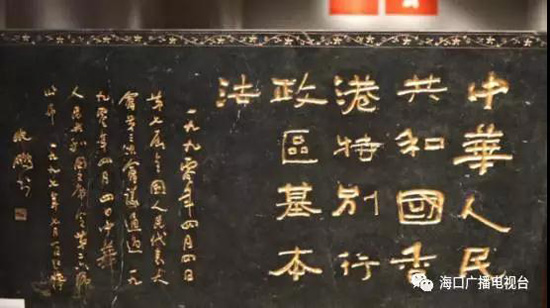 中華人民
共和國香
港特別行
政區基本
法
一九九零年四月四日
第七屆全國人民代表大
會第三次會議通過一九
九零年四月四日中華
人民共和國主席令第二六號
一九九七年七月一日
海口广播电视台